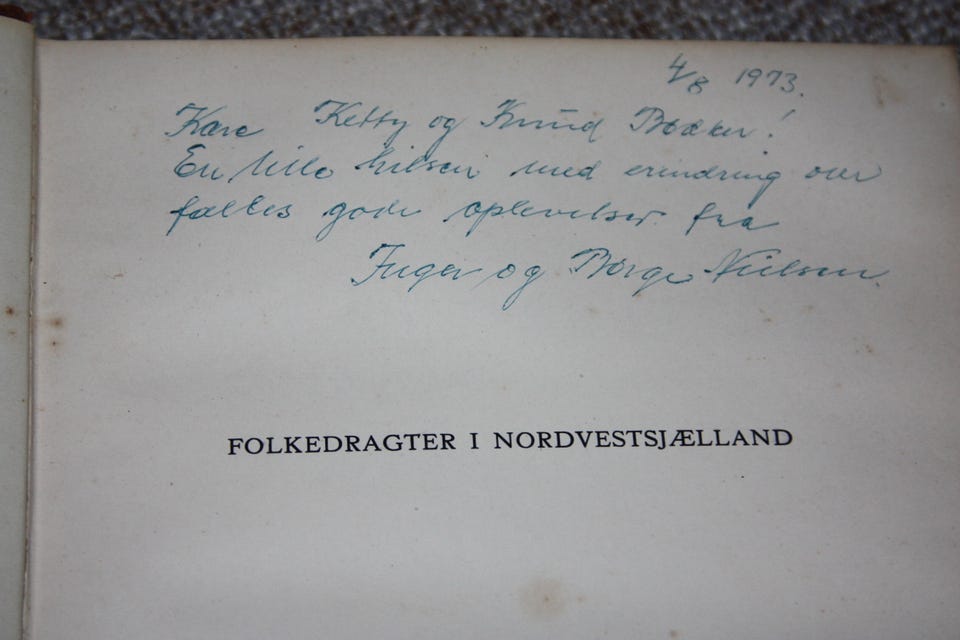 4/8 1973.
Kære Ketty og Knud Bödker!
En lille hilsen med erindring over
fælles gode oplevelser fra
Inger og Börge Nielsen.
FOLKEDRAGTER I NORDVESTSJÆLLAND